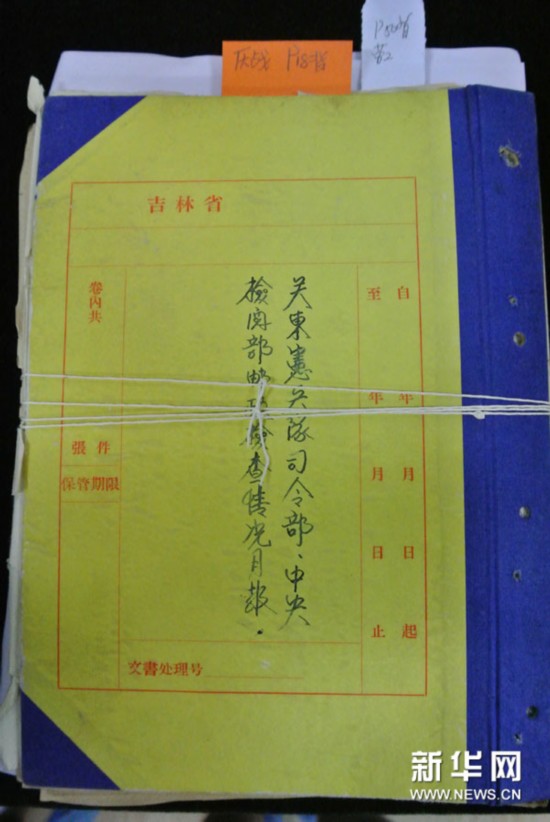 厌战 P18背
P20背
吉林省
自 年 月 日 起
至 年 月 日 止
关東憲兵隊司令部、中央
檢閱部郵政檢查情况月報.
卷內共
張件
保管期限
文書处理号
新华网
WWW.NEWS.CN